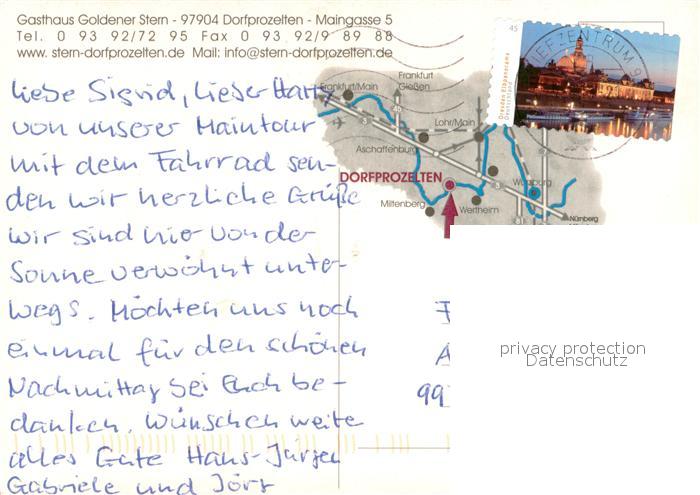 Gasthaus Goldener Stern - 97904 Dorfprozelten - Maingasse 5
Tel. 0 93 92/72 95 Fax 0 93 92/9 89 88
www. stern-dorfprozelten.de Mail: info@stern-dorfprozelten.de
Liebe Sigrid, Lieber Harry
von unserer Maintour
mit dem Fahrrad sen-
den wir herzliche Grüße
wir sind hier von der
Sonne verwöhnt unter-
wegs. Möchten uns noch
einmal für den schönen
Nachmittag bei Euch be-
danken. Wünschen weite
alles Gute Hans-Jürgen
Gabriele und Jörg
45
Dresden Elbpanorama
Deutschland
BRIEFZENTRUM 9
Frankfurt/Main
Frankfurt
Gießen
Lohr/Main
Aschaffenburg
DORFPROZELTEN
Würzburg
Miltenberg
Wertheim
Nürnberg
3
45
3
99
privacy protection
Datenschutz